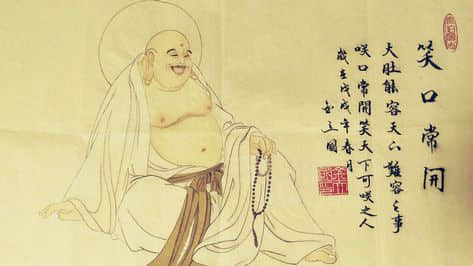 笑口常開
大肚能容天下難容之事
咲口常開笑天下可咲之人
歲在戊戌年春月
立國